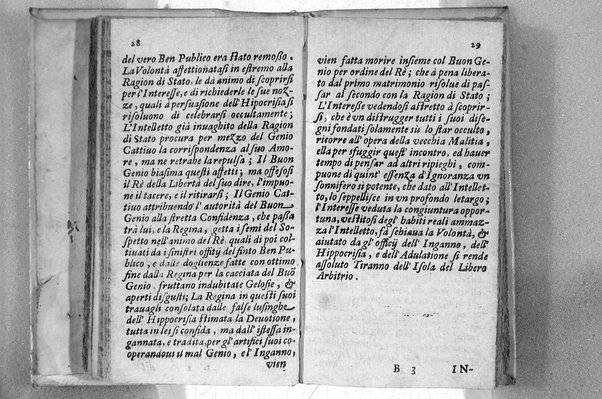 28
del vero Ben Publico era stato remosso.
La Volontà affettionatasi in estremo alla
Ragion di Stato, le dà animo di scoprirsi
per l'Interesse, e di richiederle le sue noz-
ze, quali à persuasione dell'Hipocrisia si
risoluono di celebrarsi occultamente;
L'Intelletto già inuaghito della Ragion
di Stato procura per mezzo del Genio
Cattiuo la corrispondenza al suo Amo-
re, ma ne retrahe la repulsa; Il Buon
Genio biasima questi affetti; ma offesosi
il Rè della Libertà del suo dire, l'impuo-
ne il tacere, e il ritirarsi; Il Genio Cat-
tiuo attribuendo l'autorità del Buon
Genio alla stretta Confidenza, che passa
trà lui, e la Regina, getta i semi del So-
spetto nell'animo del Rè, quali di poi col-
tiuati da i sinistri offitij del finto Ben Pu-
blico, e dalle doglienze fatte con ottimo
fine dalla Regina per la cacciata del Buō
Genio, fruttano indubitate Gelosie, &
aperti disgusti; La Regina in questi suoi
trauagli consolata dalle false lusinghe
dell'Hippocrisia stimata la Deuotione,
tutta in lei si confida, ma dall'istessa in-
gannata, e tradita, per gl'artifici suoi co-
operandoui il mal Genio, e l'Inganno,
vien
29
vien fatta morire insieme col Buon Ge-
nio per ordine del Rè; che à pena libera-
to dal primo matrimonio risolue di pas-
sar al secondo con la Ragion di Stato;
L'Interesse vedendosi astretto à scoprir-
si, che è vn distrugger tutti i suoi dise-
gni fondati solamente sù lo star occulto,
ritorre all'opera della vecchia Malitia,
ella per sfuggir quest'incontro, ed hauer
tempo di pensar ad altri ripieghi, com-
puone di quint'essenza d'Ignoranza vn
sonnifero sì potente, che dato all'Intellet-
to, lo seppellisce in vn profondo letargo;
l'Interesse veduta la congiuntura oppor-
tuna, vestitosi degl'habiti reali ammaz-
za l'Intelletto, fà schiaua la Volontà, &
aiutato da gl'officij dell'Inganno, dell'
Hippocrisia, e dell'Adulatione si rende
assoluto Tiranno dell'Isola del Libero
Arbitrio.
B 3 IN-